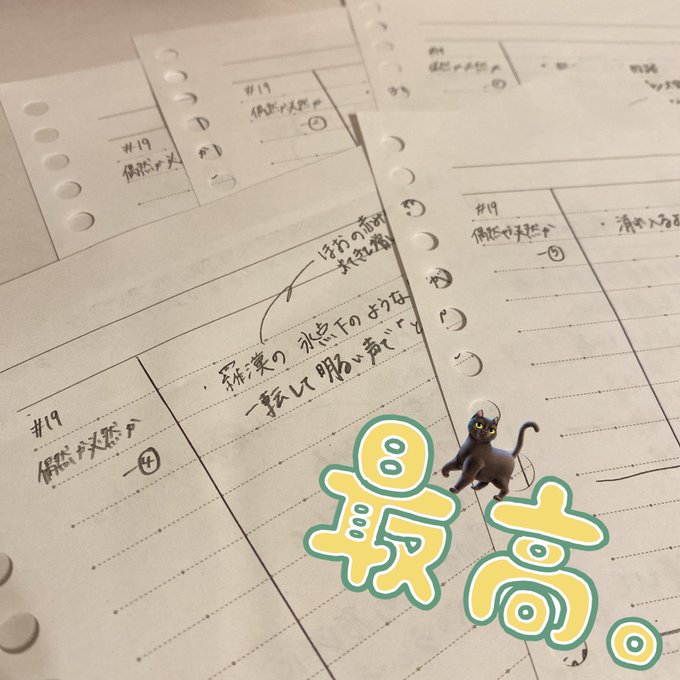 #19
偶然か必
#19
偶然か必然か
-②
#19
偶然か必然か
#19
偶然か必然か
-⑤
・消え入るよ
ほおの赤み
・羅漢の 氷点下のような
一転して明るい声で"と
#19
偶然か必然か
-④
最高。